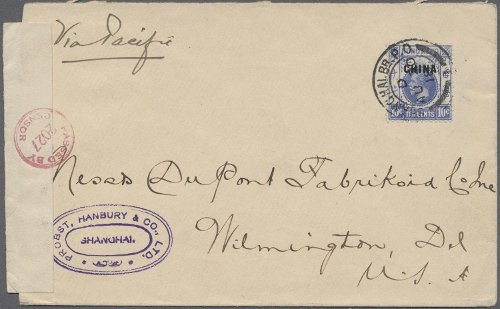 Via Pacific
SHANGHAI BR. P.O.
CHINA
10C TEN CENTS 10C
PASSED BY
2027
CENSOR
Messrs Du Pont Fabrikoid Co Inc
PROBST, HANBURY & CO., LTD.
SHANGHAI.
Wilmington, Del
U.S.A